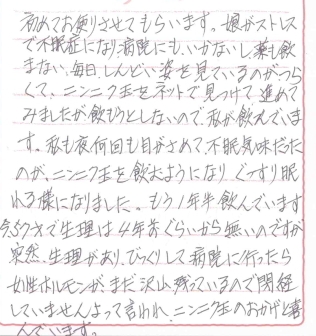 初めてお便りさせてもらいます。娘がストレス
で不眠症になり、病院にも、いかないし、薬も飲
まない、毎日、しんどい姿を見ているのがつら
くて、ニンニク玉をネットで見つけて進めて
みましたが飲もうとしないので、私が飲んでいま
す。私も夜何回も目がさめて不眠気味だった
のが、ニンニク玉を飲むようになり、ぐっすり眠
れる様になりました。もう1年半飲んでいます
今57才で生理は4年前ぐらいから無いのですが
突然、生理があり、びっくりして病院に行ったら
女性ホルモンが、まだ沢山残っているので閉経
していませんよって言われ、ニンニク玉のおかげと喜
んでいます。